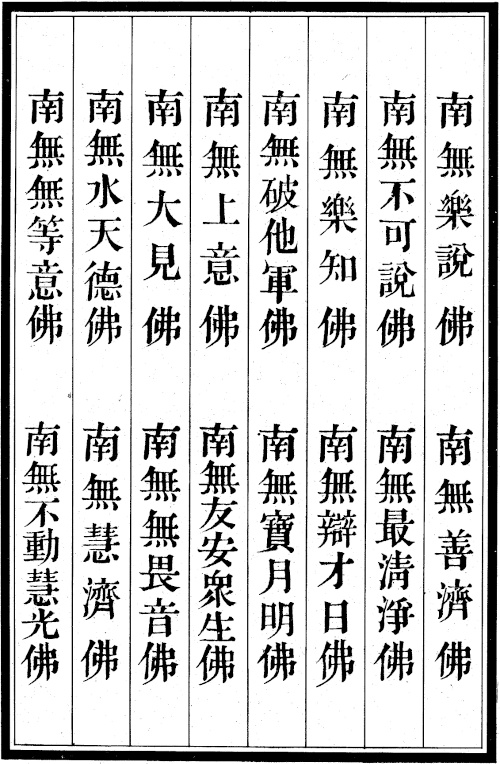 南無樂說佛　南無善濟佛
南無不可說佛　南無最清淨佛
南無樂知佛　南無辯才日佛
南無破他軍佛　南無寶月明佛
南無上意佛　南無友安衆生佛
南無大見佛　南無無畏音佛
南無水天德佛　南無慧濟佛
南無無等意佛　南無不動慧光佛